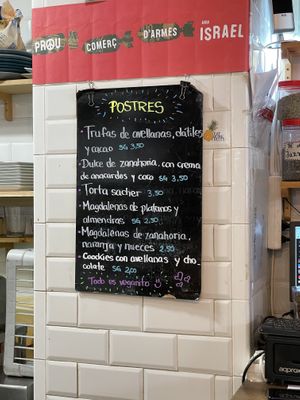 PROU
COMERÇ
D'ARMES
AMB
ISRAEL
POSTRES
· Trufas de avellanas, dátiles
y cacao SG 3,50
· Dulce de zanahoria, con crema
de anacardos y coco SG 3,50
· Torta sacher 3,50
· Magdalenas de platanos y
almendras SG 2,50
· Magdalenas de zanahoria,
naranja y nueces 2,50
· Coockies con avellanas y cho
colate SG 2,00
Todo es veganito